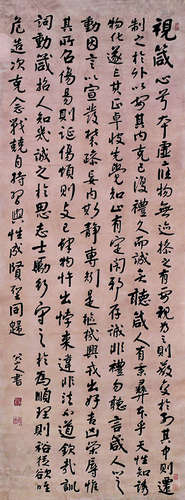 視箴心兮本虛應物無迹操之有要視為之則蔽交於前其中則遷
制之於外以安其內克己復禮久而誠矣聽箴人有秉彝本乎天性知誘
物化遂亡其正卓彼先覺知止有定閑邪存誠非禮勿聽言箴人心之
動因言以宣發禁躁妄內斯靜專矧是樞機興戎出好吉凶榮辱惟
其所召傷易則誕傷煩則支己肆物忤出悖來違非法不道欽哉訓
詞動箴哲人知幾誠之於思志士勵行守之於為順理則裕從欲惟
危造次克念戰兢自持習與性成賢聖同歸
八大山人書